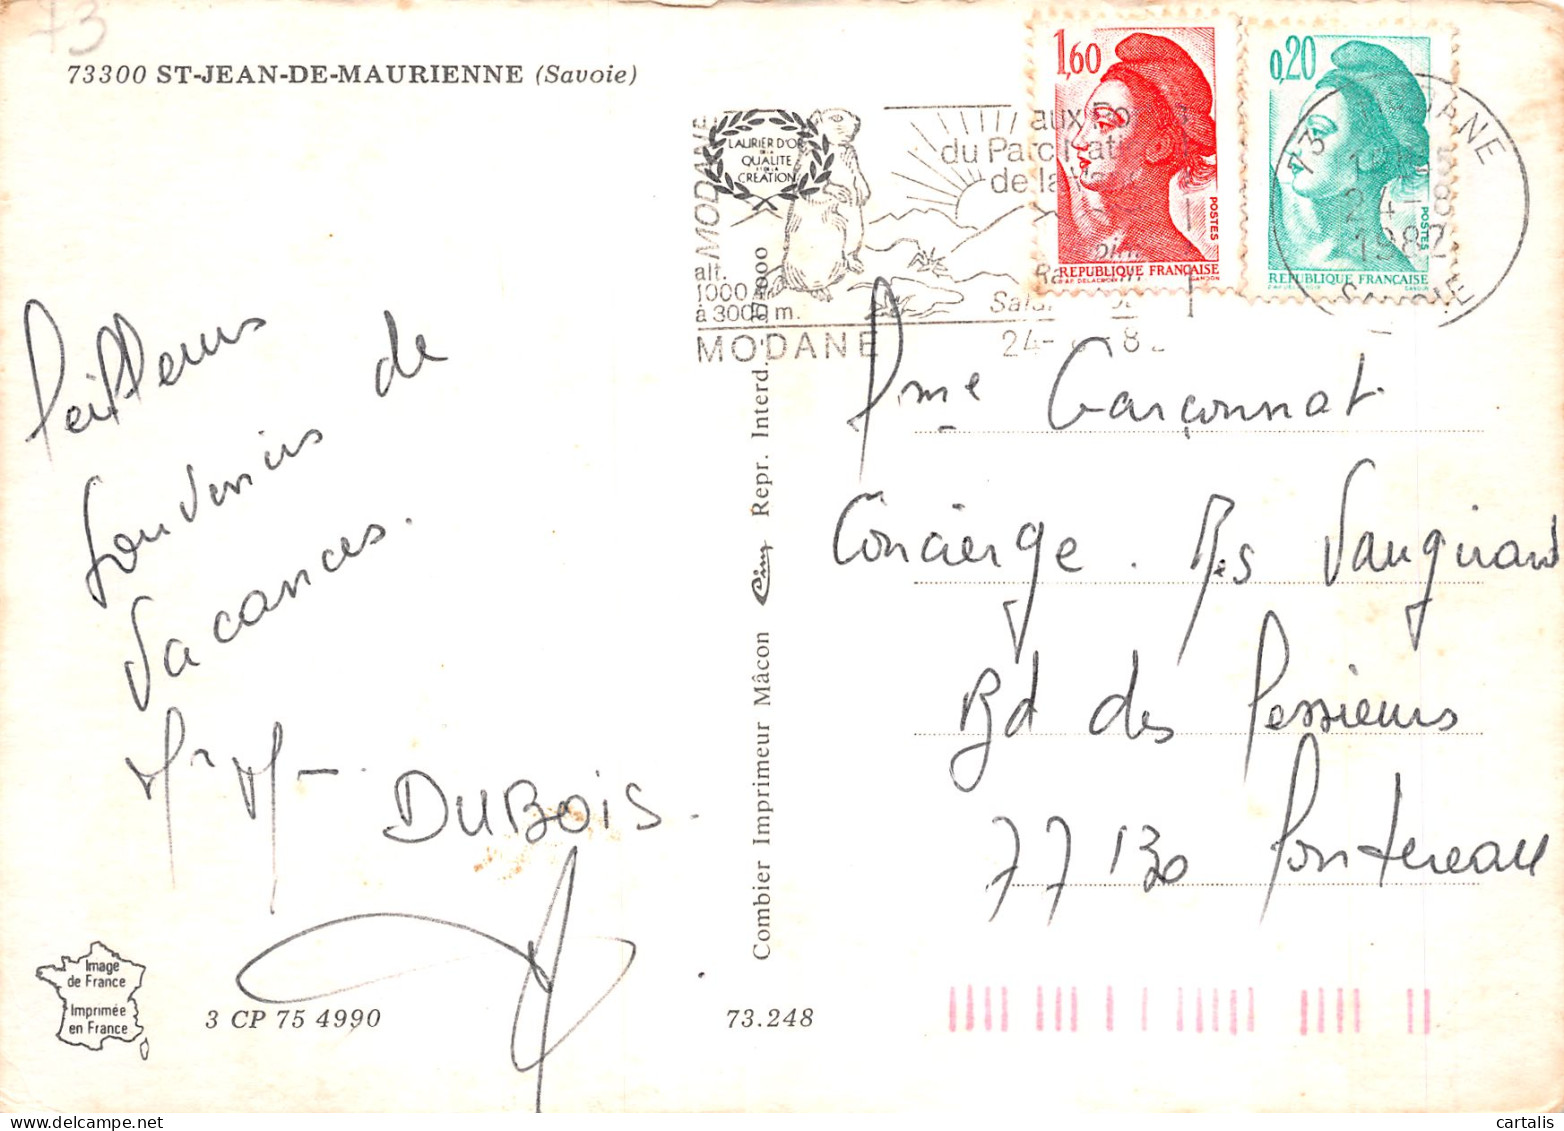 73
73300 ST-JEAN-DE-MAURIENNE (Savoie)
Meilleurs
souvenirs de
vacances.
Mr Mme DUBOIS.
Image
de France
Imprimée
en France
3 CP 75 4990
73.248
Combier Imprimeur Mâcon Cim Repr. Interd.
MODANE
LAURIER D'OR
DE LA
QUALITÉ
ET DE LA
CRÉATION
alt.
1000
à 3000 m.
MODANE
aux
du Parc
de la
24- 8
1,60
POSTES
REPUBLIQUE FRANÇAISE
0,20
POSTES
REPUBLIQUE FRANÇAISE
73 MODANE
24-8
1987
SAVOIE
Mme Garçonnat
Concierge. Res Vaugirard
Bd des Pessieurs
77130 Montereau
cartalis